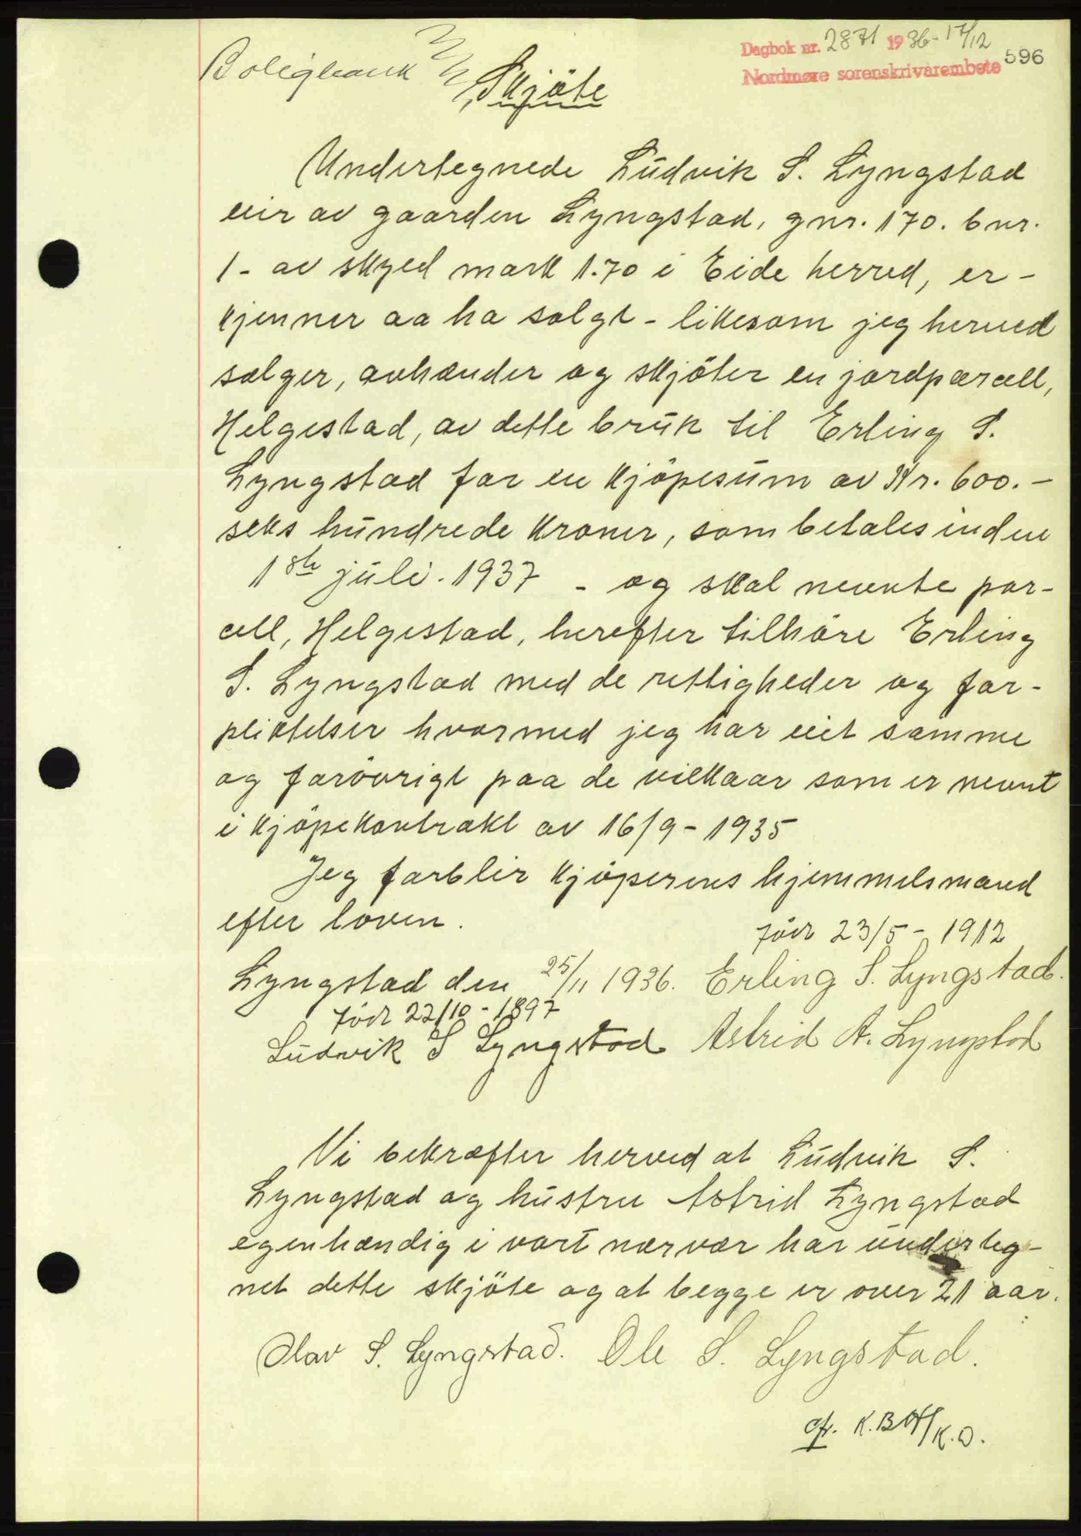 Dagbok nr. 2871 1936-17/12
Nordmøre sorenskrivarembete 596
Boligbank
Skjöte
Undertegnede Ludvik S. Lyngstad
eier av gaarden Lyngstad, gnr. 170. bnr.
1- av skyld mark 1.70 i Eide herred, er-
kjenner aa ha solgt - likesom jeg herved
sælger, avhænder og skjöter en jordparcell,
Helgestad, av dette bruk til Erling S.
Lyngstad for en kjöpesum av Kr. 600.-
seks hundrede kroner, som betales inden
1ste juli. 1937 - og skal nevnte par-
cell, Helgestad, herefter tilhöre Erling
S. Lyngstad med de rettigheder og for-
pliktelser hvormed jeg har eiet samme
og forövrigt paa de vilkaar som er nevnt
i kjöpekontrakt av 16/9-1935
Jeg forblir kjöperens hjemmelsmand
efter loven.
födt 23/5-1912
Lyngstad den 25/11 1936. Erling S. Lyngstad.
födt 22/10-1897
Ludvik S Lyngstad Astrid A. Lyngstad
Vi bekræfter herved at Ludvik S.
Lyngstad og hustru Astrid Lyngstad
egenhændig i vort nærvær har underteg-
net dette skjöte og at begge er over 21 aar.
Olav S. Lyngstad. Ole S. Lyngstad.
K.D.